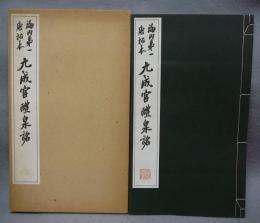 海内第一
唐拓本
九成宮醴泉銘
海内第一
唐拓本
九成宮醴泉銘